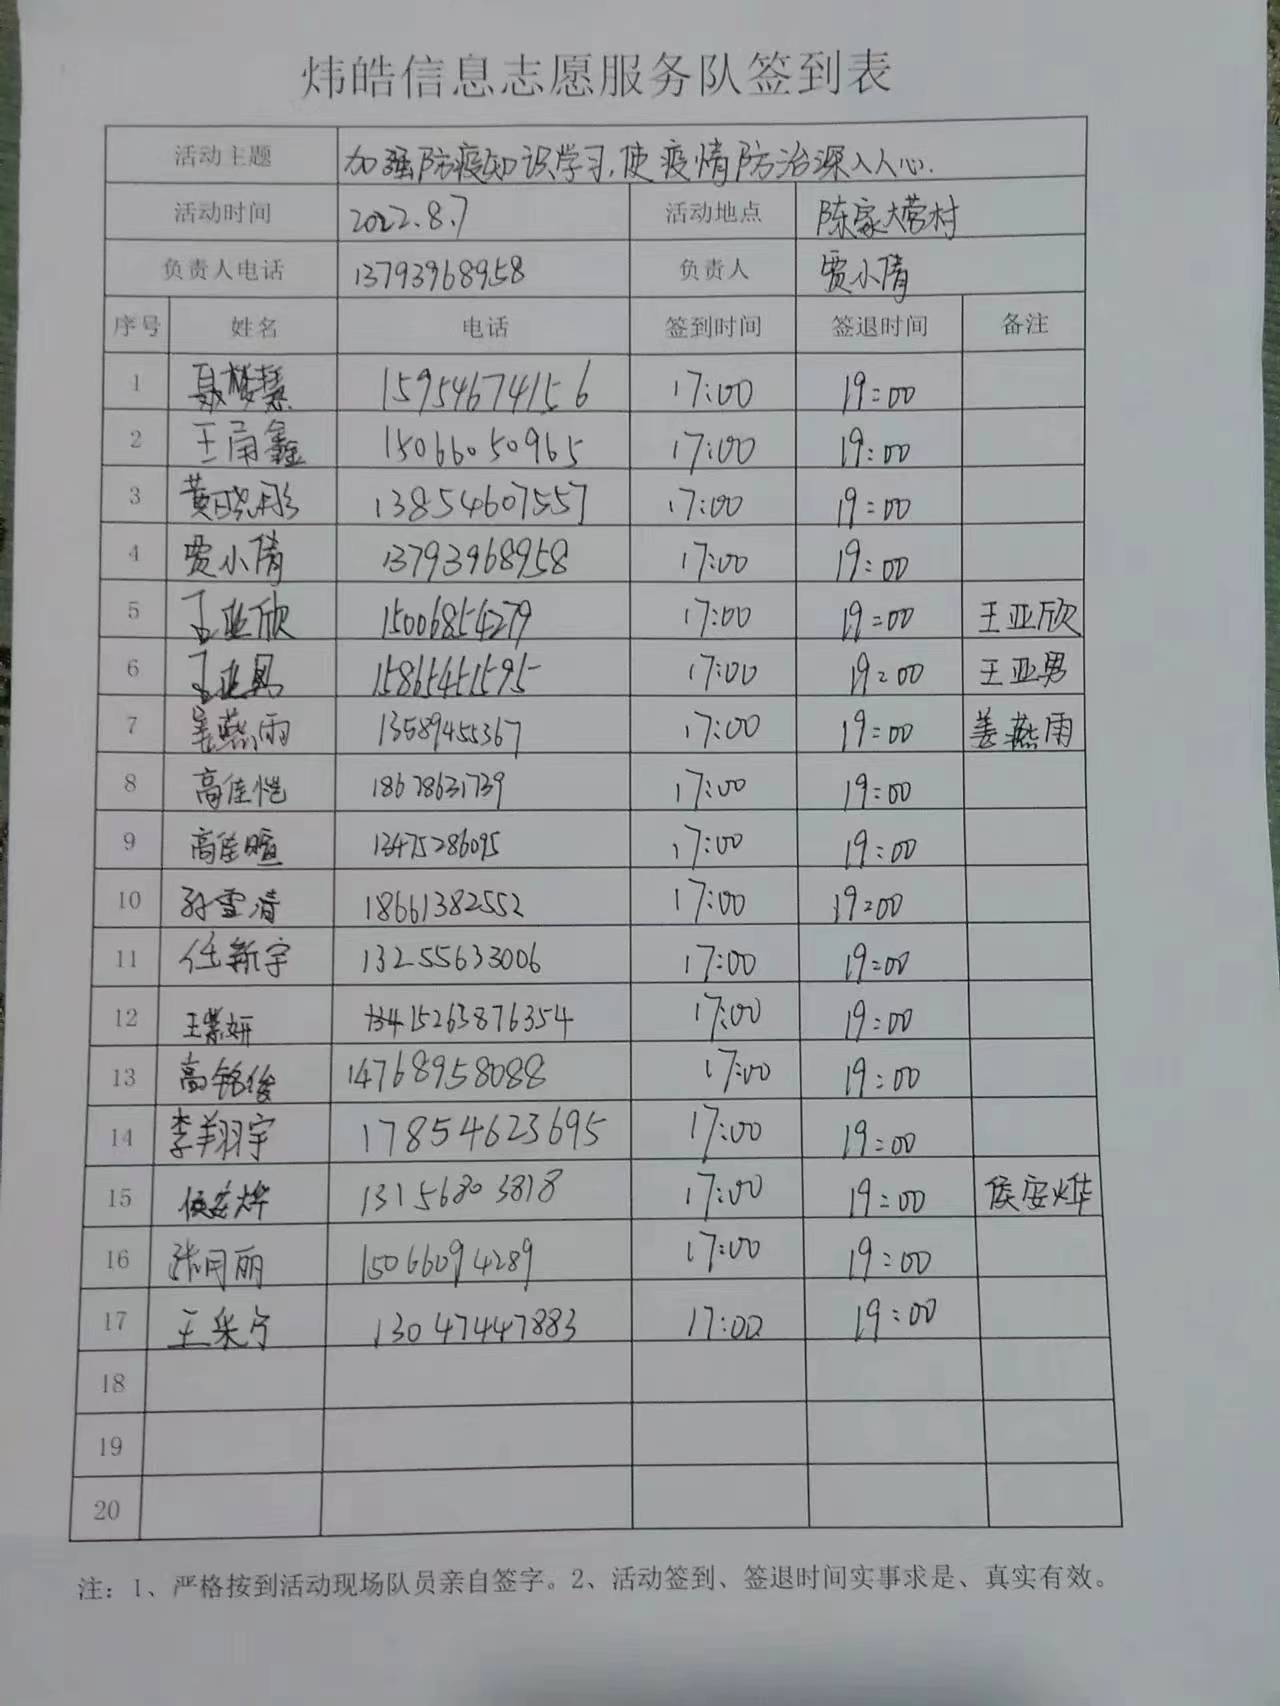 炜皓信息志愿服务队签到表
活动主题 加强防疫知识学习,使疫情防治深入人心.
活动时间 2022.8.7 活动地点 陈家大营村
负责人电话 13793968958 负责人 贾小倩
序号 姓名 电话 签到时间 签退时间 备注
1 15954674156 17:00 19:00
2 王雨鑫 15066050965 17:00 19:00
3 黄晓彤 13854607557 17:00 19:00
4 贾小倩 13793968958 17:00 19:00
5 王亚欣 15006854279 17:00 19:00 王亚欣
6 王亚男 15865451595 17:00 19:00 王亚男
7 姜燕雨 13589455367 17:00 19:00 姜燕雨
8 高佳恺 18678631739 17:00 19:00
9 高佳暄 13475286095 17:00 19:00
10 孙雪清 18661382552 17:00 19:00
11 任新宇 13255633006 17:00 19:00
12 王紫妍 15263876354 17:00 19:00
13 高铭俊 14768958088 17:00 19:00
14 李翔宇 17854623695 17:00 19:00
15 侯安烨 13156803818 17:00 19:00 侯安烨
16 张月丽 15066094289 17:00 19:00
17 王采宁 13047447883 17:00 19:00
18
19
20
注：1、严格按到活动现场队员亲自签字。2、活动签到、签退时间实事求是、真实有效。